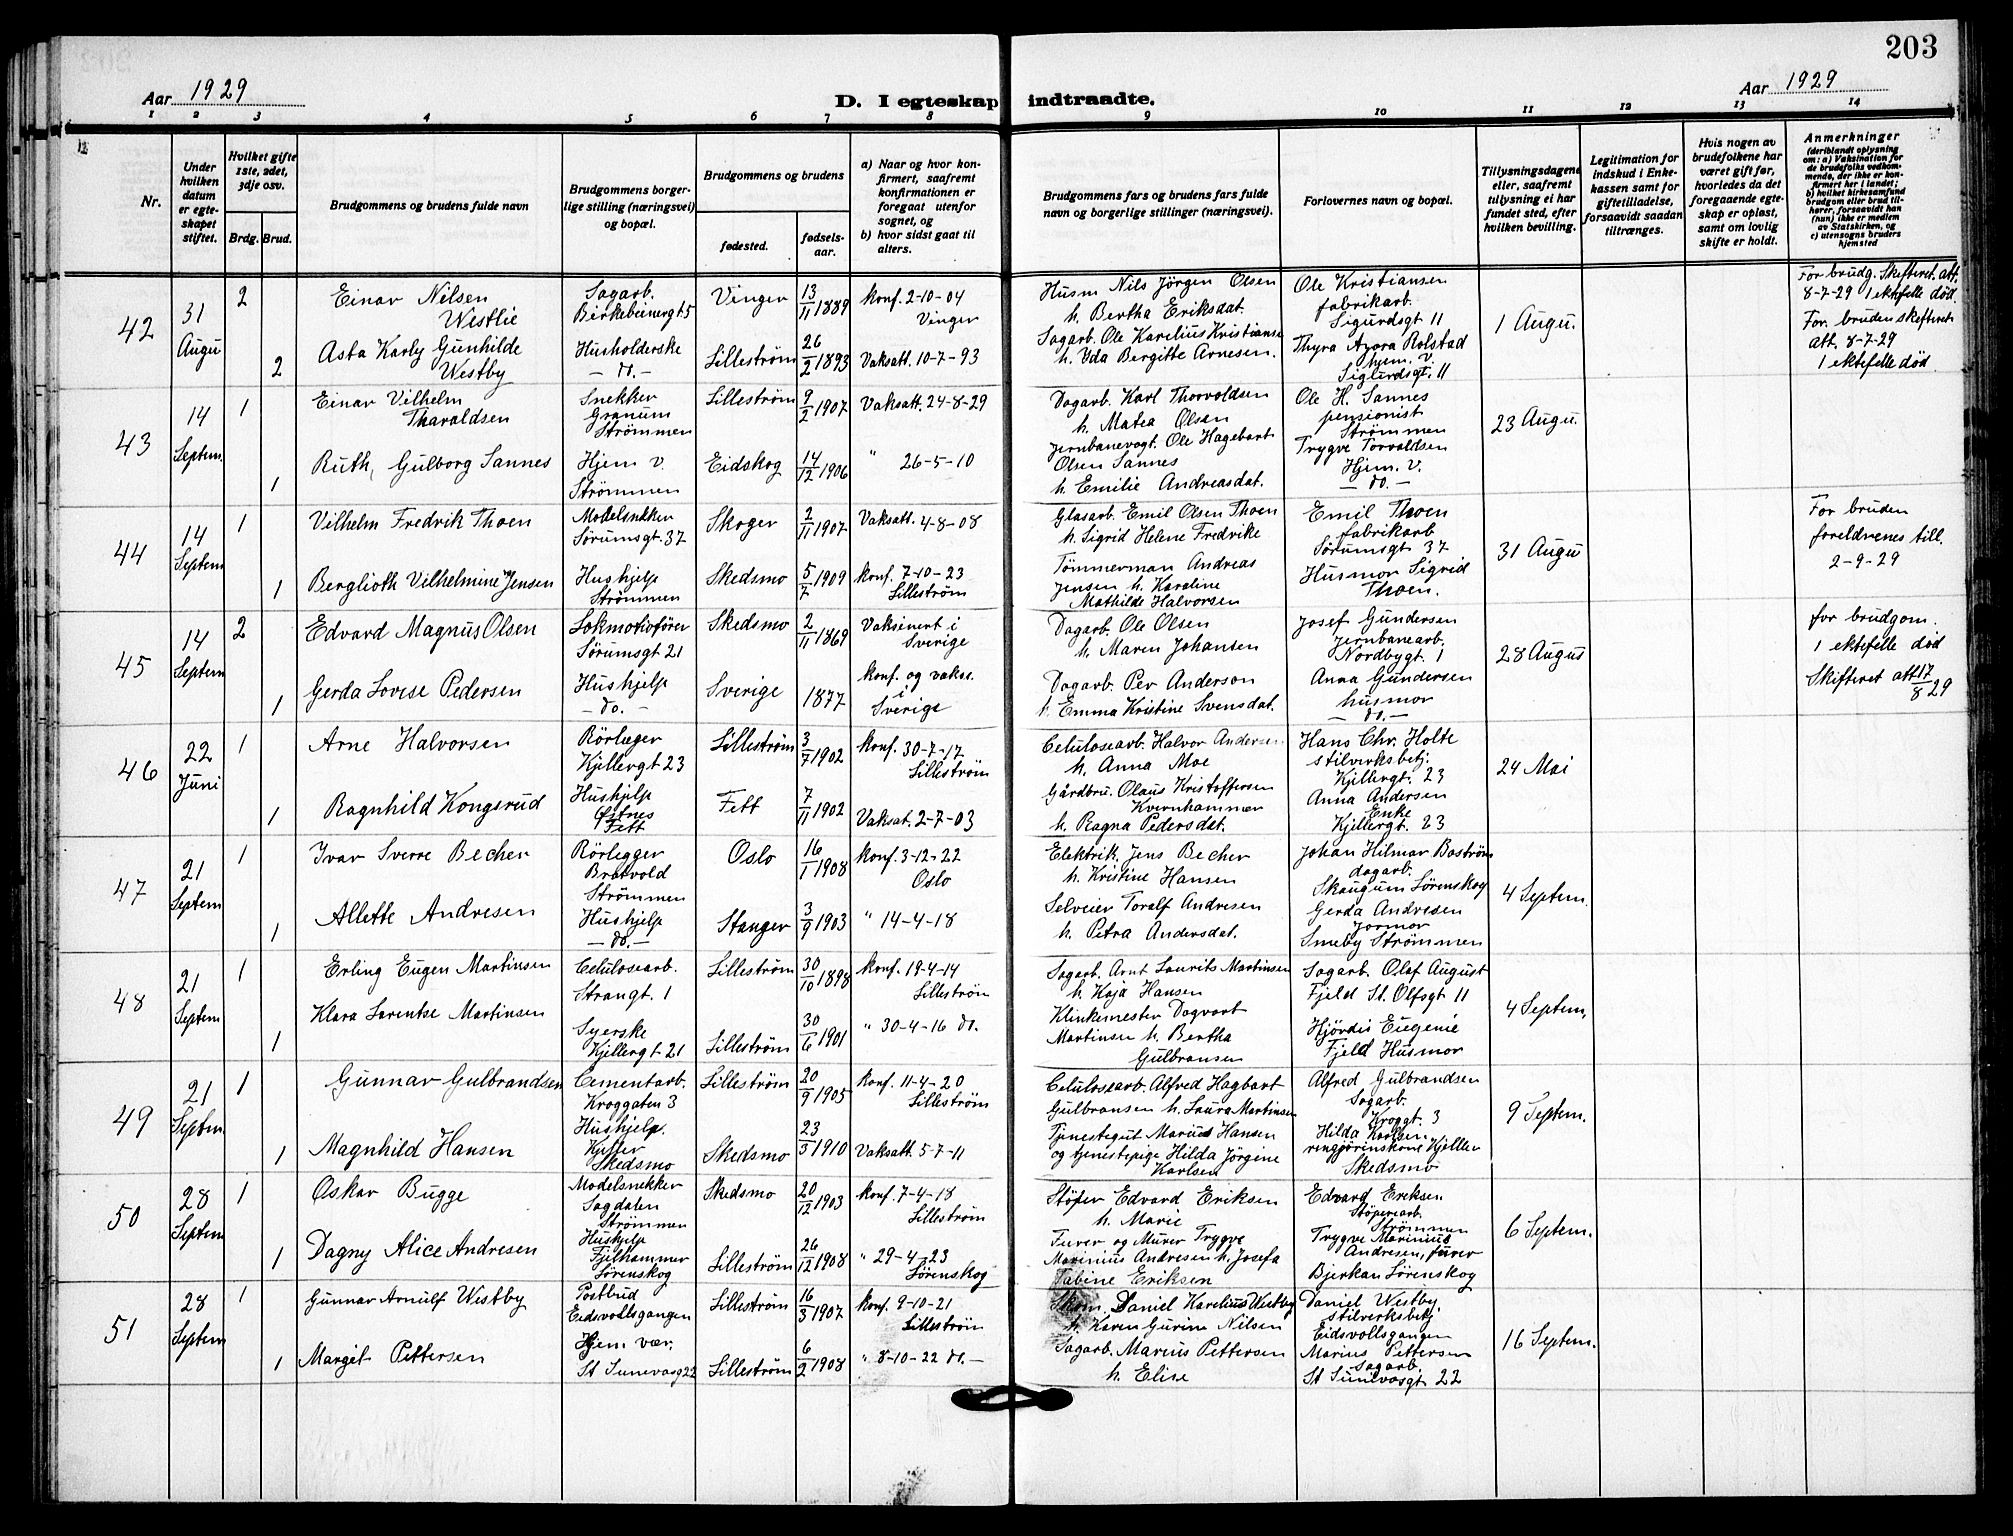 203
Aar 1929
D. I egteskap indtraadte.
Aar 1929
1 2 3 4 5 6 7 8 9 10 11 12 13 14
Nr.
Under hvilken datum er egte-skapet stiftet.
Hvilket gifte 1ste, 2det, 3dje osv.
Brdg. Brud.
Brudgommens og brudens fulde navn
Brudgommens borger-lige stilling (næringsvei) og bopæl.
Brudgommens og brudens
fødested.
fødsels-aar.
a) Naar og hvor kon-firmert, saafremt konfirmationen er foregaat utenfor sognet, og
b) hvor sidst gaat til alters.
Brudgommens fars og brudens fars fulde navn og borgerlige stillinger (næringsvei).
Forlovernes navn og bopæl.
Tillysningsdagene eller, saafremt tillysning ei har fundet sted, efter hvilken bevilling.
Legitimation for indskud i Enke-kassen samt for giftetilladelse, forsaavidt saadan tiltrænges.
Hvis nogen av brudefolkene har været gift før, hvorledes da det foregaaende egte-skap er opløst, samt om lovlig skifte er holdt.
Anmerkninger
(deriblandt oplysning om: a) Vaksination for de brudefolks vedkom-mende, der ikke er kon-firmert her i landet; b) hvilket kirkesamfund brudgom eller brud til-hører, forsaavidt han (hun) ikke er medlem av Statskirken, og c) utensogns bruders hjemsted
42
31 Augu
2
Einar Nilsen Westlie
Sagarb. Birkebeinergt 5
Vinger
13/11 1889
Konf. 2-10-04 Vinger
Husm Nils Jörgen Olsen
h. Bertha Eriksdat.
Ole Kristiansen fabrikarb. Sigurdsgt 11
1 Augu.
For brudg. Skifteret. att. 8-7-29 1 ektefelle död.
2
Asta Karly Gunhilde Westby
Husholderske - do. -
Lilleström
26/2 1893
Vaksatt. 10-7-93
Sagarb. Ole Karelius Kristianse
h. Yda Bergitte Arnesen.
Thyra Agora Rolstad hjem. v. Sigurdsgt. 11
For bruden skifteret att. 8-7-29 1 ektefelle död
43
14 Septem.
1
Einar Vilhelm Tharaldsen
Snekker Granum Strömmen
Lilleström
9/2 1907
Vaksatt. 24-8-29
Dagarb. Karl Thorvaldsen
h. Matea Olsen
Ole H. Sannes pensionist Strömmen
23 Augu.
1
Ruth, Gulborg Sannes
Hjem v. Strömmen
Eidskog
14/12 1906
" 26-5-10
Jernbanevogt. Ole Hagebart Olsen Sannes
h. Emilie Andreasdat.
Trygve Torvaldsen Hjem. v. - do. -
44
14 Septem
1
Vilhelm Fredrik Thoen
Modelsnekker Sörumsgt. 37
Skoger
2/11 1907
Vaksatt. 4-8-08
Glasarb. Emil Olsen Thoen
h. Sigrid Helene Fredrike
Emil Thoen fabrikarb Sörumsgt 37
31 Augu
For bruden foreldrenes till. 2-9-29
1
Berglioth Vilhelmine Jensen
Hushjelp Strömmen
Skedsmo
5/7 1909
Konf. 7-10-23 Lilleström
Tömmerman Andreas Jensen h. Karoline Mathilde Halvorsen
Husmor Sigrid Thoen.
45
14 Septem
2
Edvard Magnus Olsen
Lokmotivförer Sörumsgt 21
Skedsmo
2/11 1869
Vaksinert i Sverige
Dagarb. Ole Olsen
h. Maren Johansen
Josef Gundersen Jernbanearb. Nordbygt. 1
28 Augus
for brudgom. 1 ektefelle död Skifteret att 17/8 29
1
Gerda Lovise Pedersen
Hushjelp - do. -
Sverige
1877
konf. og vaks. i Sverige
Dagarb. Per Anderson
h. Emma Kristine Svensdat.
Anna Gundersen husmor - do. -
46
22 Juni
1
Arne Halvorsen
Rörlæger Kjellergt 23
Lilleström
3/7 1902
Konf. 30-7-17 Lilleström
Celulosearb. Halvor Andersen
h. Anna Moe
Hans Chr. Holte stilverksbetj. Kjellergt. 23
24 Mai
1
Ragnhild Kongsrud
Hushjelp Östnes Fett
Fett
7/11 1902
Vaksat. 2-7-03
Gårdbru. Olaus Kristoffersen Kvernhammer
h. Ragna Pedersdat.
Anna Andersen Enke Kjellergt. 23
47
21 Septem
1
Ivar Sverre Becher
Rörlegger Bratvold Strömmen
Oslo
16/1 1908
Konf. 3-12-22 Oslo
Elektrik. Jens Becher
h. Kristine Hansen
Johan Hilmar Boström dagarb. Skaugum Lörenskog
4 Septem.
1
Allette Andresen
Hushjelp - do. -
Stanger
3/9 1903
" 14-4-18
Selveier Toralf Andresen
h. Petra Andersdat.
Gerda Andresen Jormor Smeby Strömmen
48
21 Septem
1
Erling Eugen Martinsen
Celulosearb. Strangt. 1
Lilleström
30/10 1898
Konf. 19-4-14 Lilleström
Sagarb. Arnt Laurits Martinsen
h. Kaja Hansen
Sagarb. Olaf August Fjeld St. Olfsgt 11
4 Septem.
1
Klara Lorentse Martinsen
Syerske Kjellergt 21
Lilleström
30/6 1901
" 30-4-16 do.
Klinkemester Dagvart Martinsen h. Bertha Gulbransen
Hjördis Eugenie Fjeld Husmor
49
21 Septem
1
Gunnar Gulbrandsen
Cementarb. Kroggaten 3
Lilleström
20/9 1905
Konf. 11-4-20 Lilleström
Celulosearb. Alfred Hagbart Gulbransen h. Laura Martinsen
Alfred Gulbrandsen Sagarb. Kroggt. 3
9 Septem.
1
Magnhild Hansen
Hushjelp. Kjeller Skedsmo
Skedsmo
23/3 1910
Vaksatt. 5-7-11
Tjenestegut Marius Hansen og tjenestepige Hilda Jörgine Karlsen
Hilda Karlsen rengjöringskone Kjeller Skedsmo
50
28 Septem
1
Oskar Bugge
Modelsnekker Sagdalen Strömmen
Skedsmo
20/12 1903
Konf. 7-4-18 Lilleström
Stöper Edvard Eriksen
h. Marie
Edvard Eriksen Stöperiarb. Strömmen
6 Septem.
1
Dagny Alice Andresen
Hushjelp Fjelhammer Lörenskog
Lilleström
26/12 1908
" 29-4-23 Lörenskog
Furer og Murer Trygve Marinius Andresen h. Josefa Sabine Eriksen
Trygve Marinius Andresen, furer Bjerkan Lörenskog
51
28 Septem
1
Gunnar Arnulf Westby
Postbud Eidsvollsgangen
Lilleström
16/3 1907
Konf. 9-10-21 Lilleström
Skom. Daniel Karelius Westby
h. Karen Gurine Nilsen
Daniel Westby, stilverksbetj Eidsvollsgangen
16 Septem.
1
Margit Pettersen
Hjem vær. St Sunevasg 22
Lilleström
6/2 1908
" 8-10-22 do. -
Sagarb. Marius Pettersen
h. Elise
Marius Pettersen Sagarb. St Sunivasgt 22